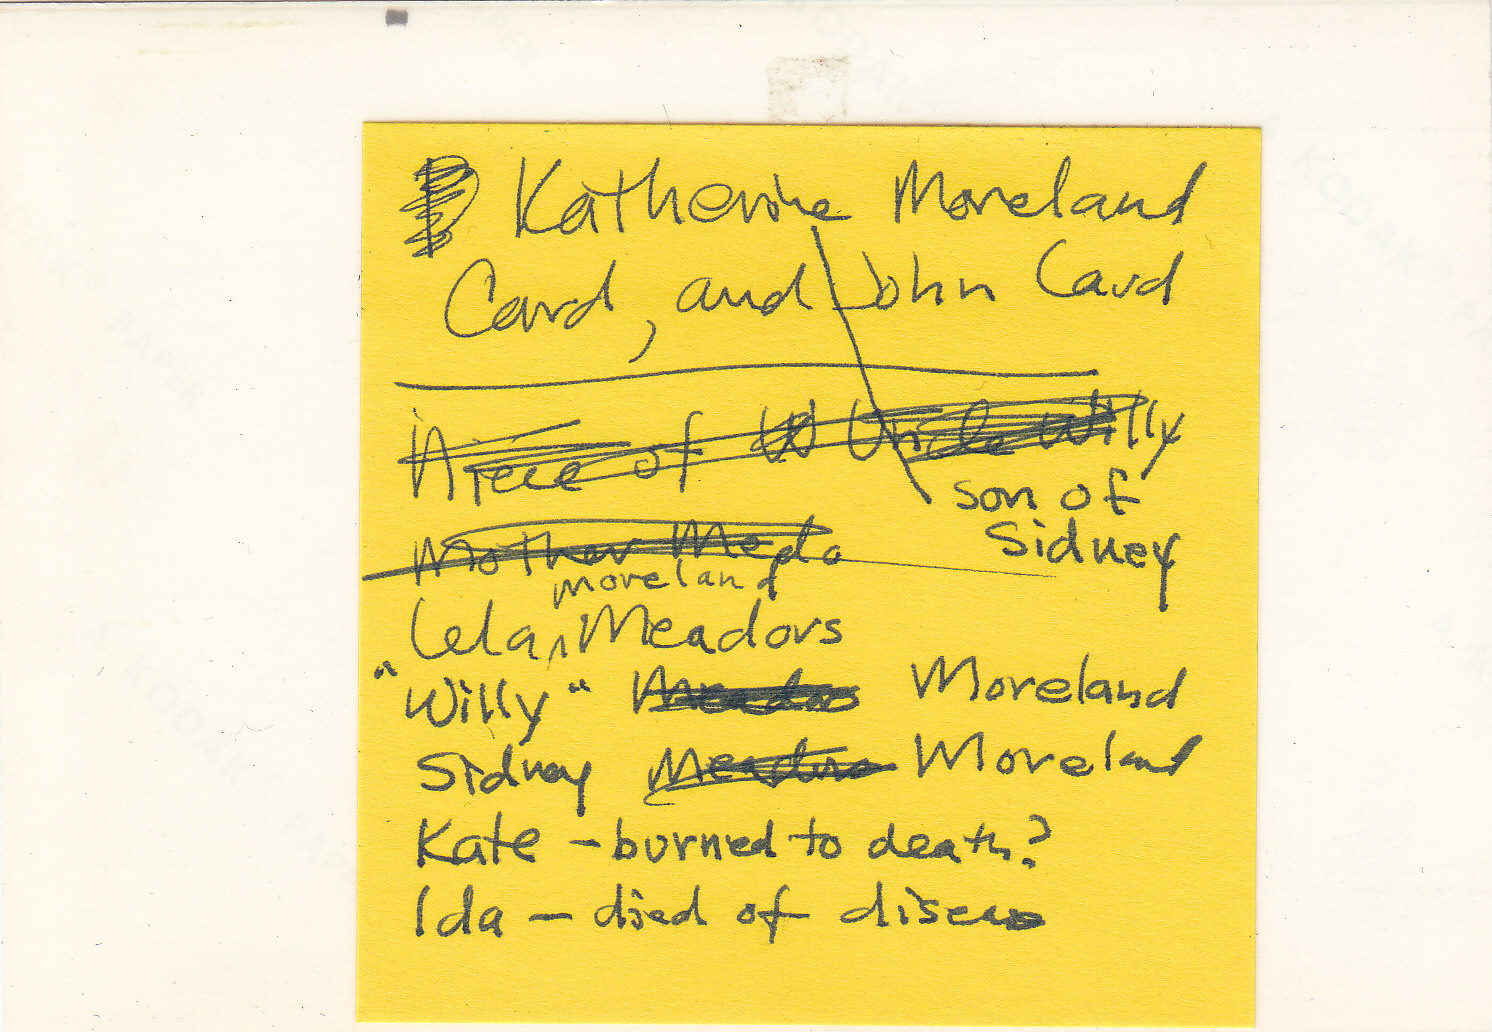 Katherine Moreland
Card, and John Card
Niece of Uncle Willy
son of
Sidney
Mother Meda
Moreland
Lela, Meadors
"Willy" Meadors Moreland
Sidney Meadors Moreland
Kate - burned to death?
Ida - died of disease